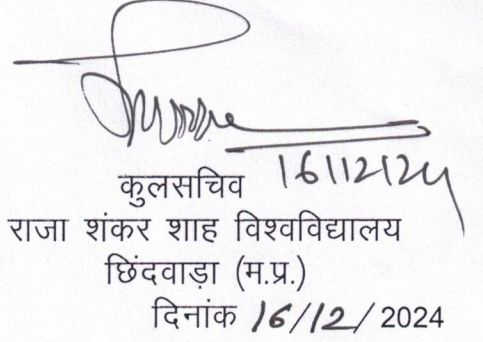 कुलसचिव 16/12/24
राजा शंकर शाह विश्वविद्यालय
छिंदवाड़ा (म.प्र.)
दिनांक 16/12/2024